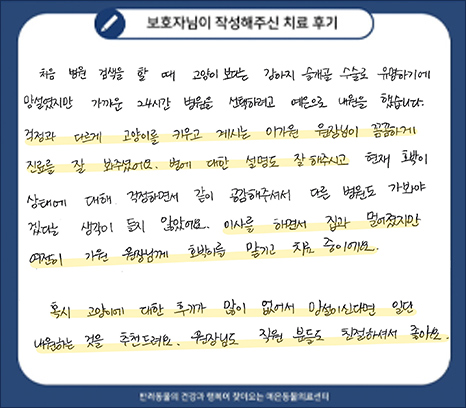 보호자님이 작성해주신 치료 후기
처음 병원 검색을 할 때 고양이 보다는 강아지 슬개골 수술로 유명하기에
망설였지만 가까운 24시간 병원을 선택하려고 예은으로 내원을 했습니다.
걱정과 다르게 고양이를 키우고 계시는 이가원 원장님이 꼼꼼하게
진료를 잘 봐주셨어요. 병에 대한 설명도 잘 해주시고 현재 호박이
상태에 대해 걱정하면서 같이 공감해주셔서 다른 병원도 가봐야
겠다는 생각이 들지 않았어요. 이사를 하면서 집과 멀어졌지만
여전히 가원 원장님께 호박이를 맡기고 치료 중이에요.
혹시 고양이에 대한 후기가 많이 없어서 망설이신다면 일단
내원하는 것을 추천드려요. 원장님도 직원 분들도 친절하셔서 좋아요.
반려동물의 건강과 행복이 찾아오는 예은동물의료센터